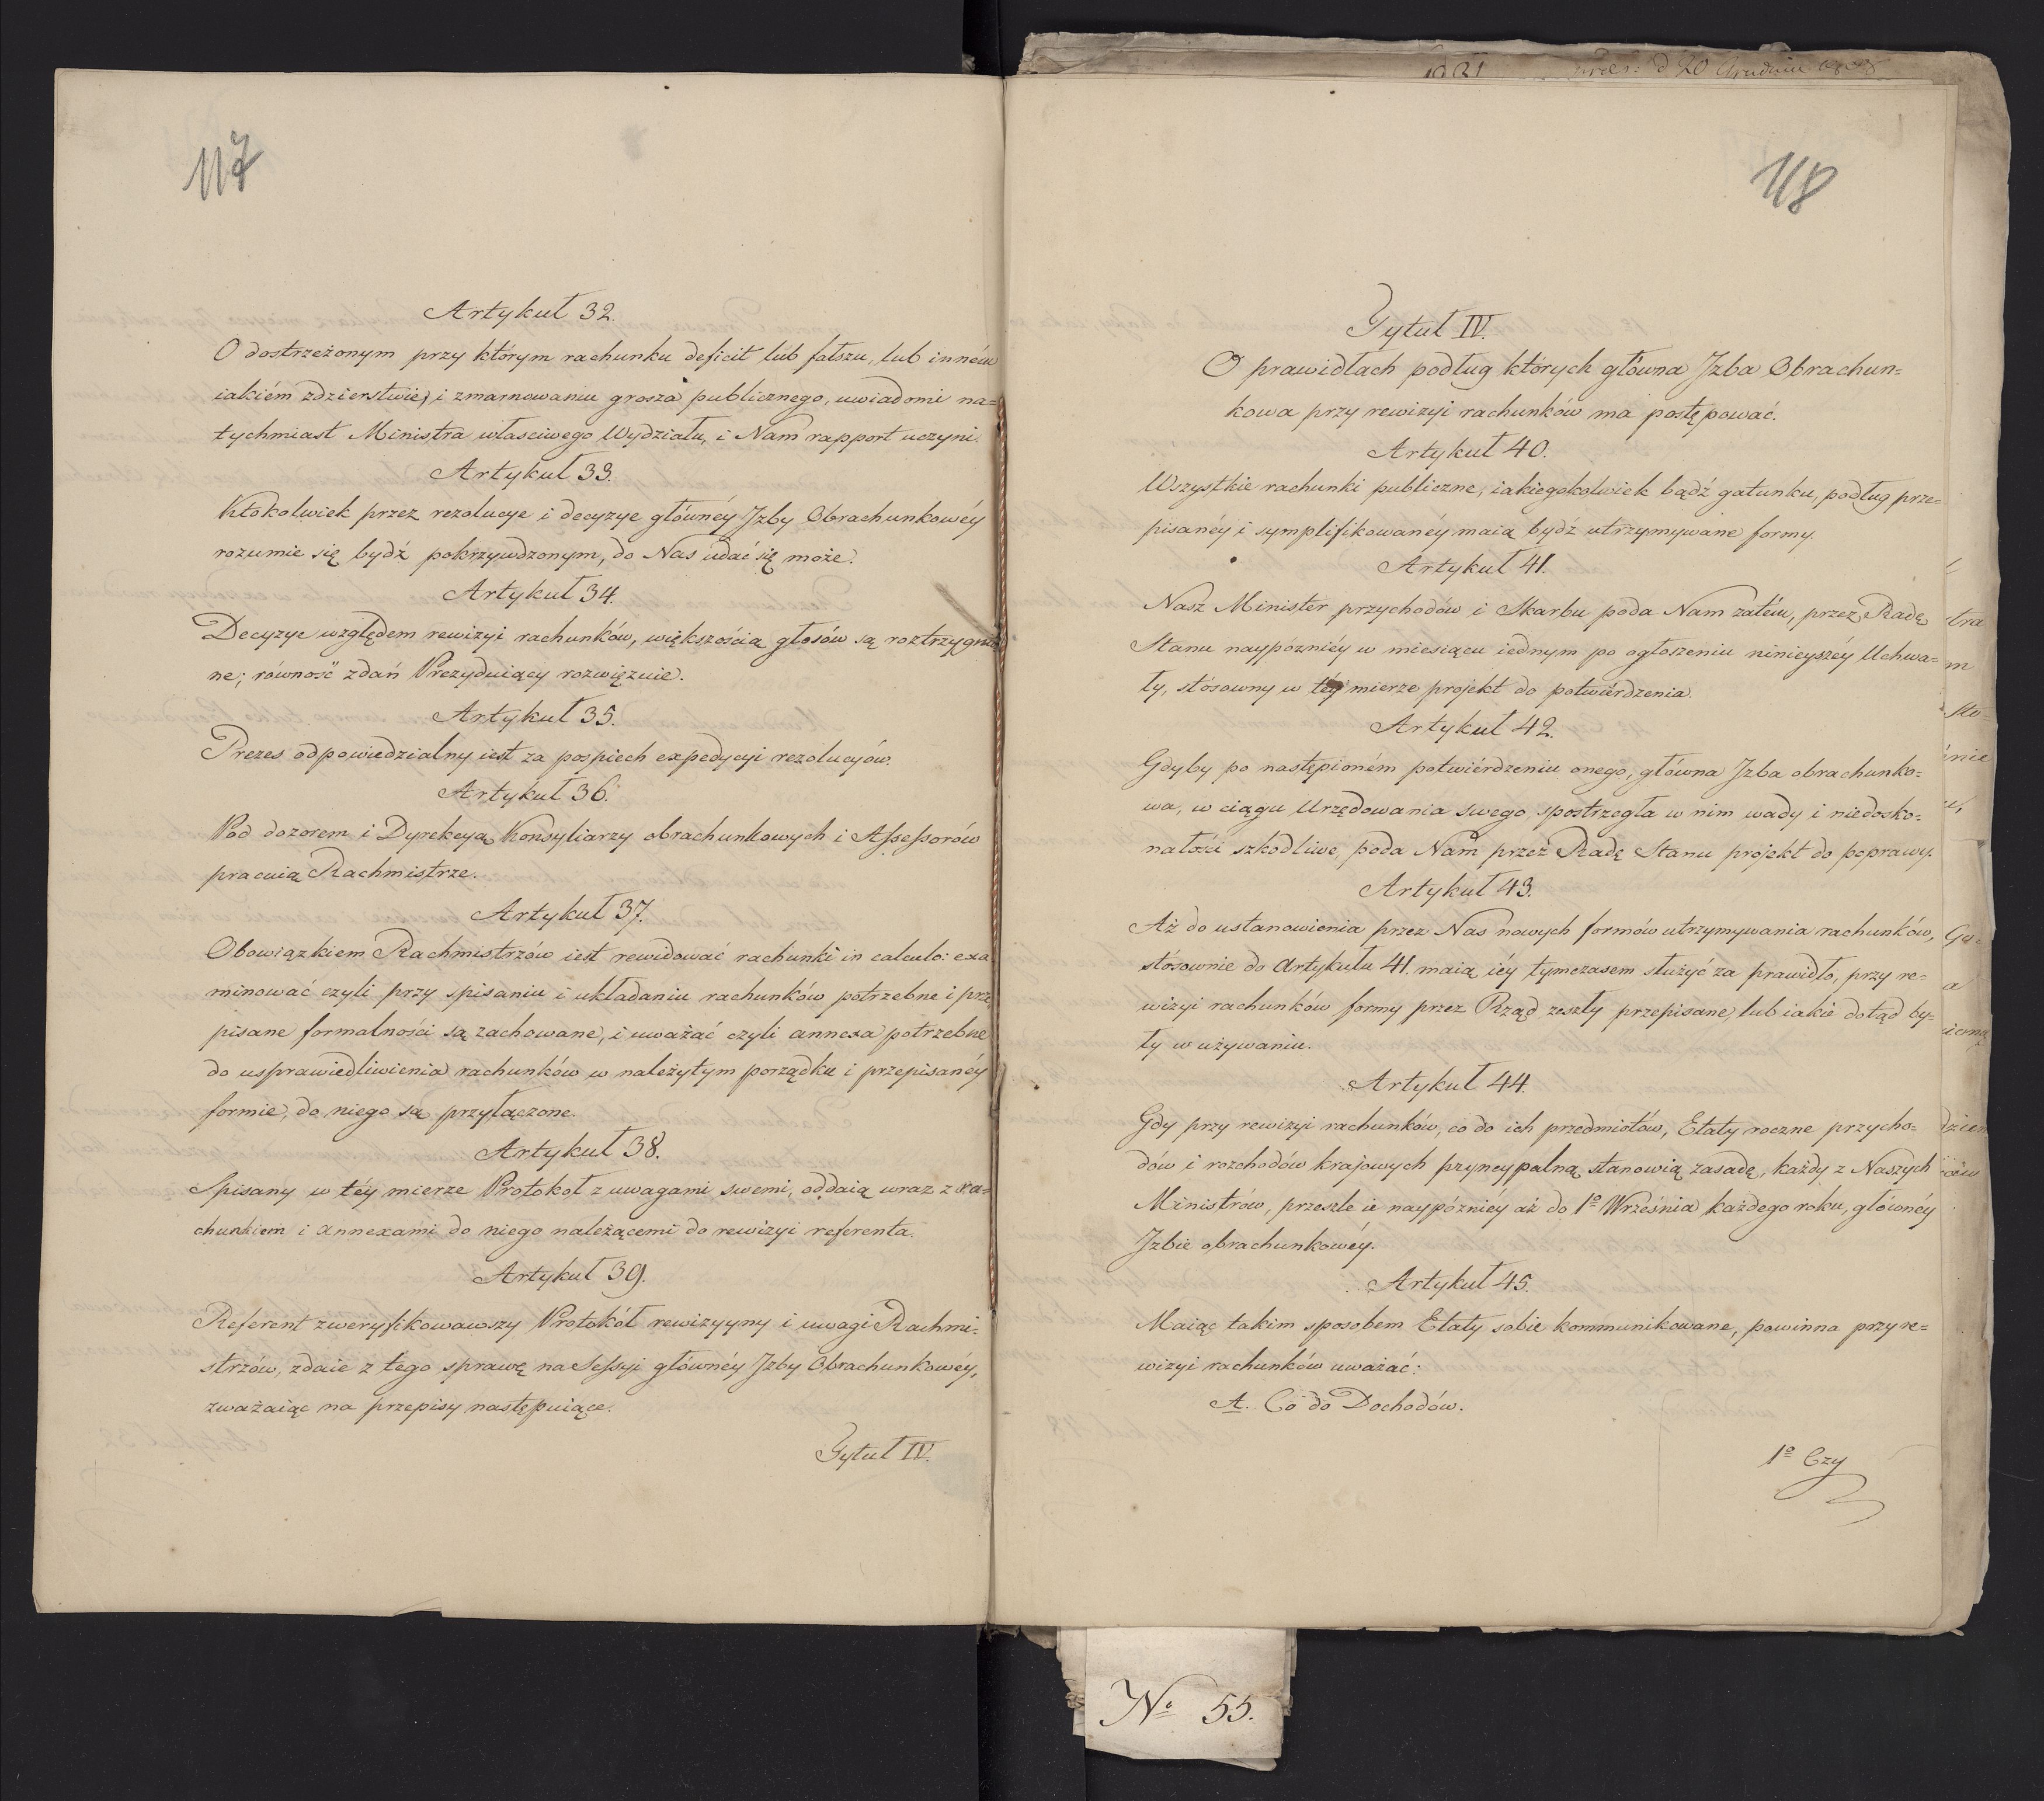 117
Artykuł 32.
O dostrzeżonym przy którym rachunku deficit lub fałszu, lub inném
iakiém zdzierstwie, i zmarnowaniu grosza publicznego, uwiadomi na=
tychmiast Ministra właściwego Wydziału, i Nam rapport uczyni.
Artykuł 33.
Ktokolwiek przez rezolucye i decyzye główney Jzby Obrachunkowéy
rozumie się bydź pokrzywdzonym, do Nas udać się może.
Artykuł 34.
Decyzye względem rewizyi rachunków, większością głosów są roztrzygnio
ne; równość zdań Prezyduiący rozwięzuie.
Artykuł 35.
Prezes odpowiedzialny iest za pospiech expedycyi rezolucyów.
Artykuł 36.
Pod dozorem i Dyrekcyą Konsyliarzy obrachunkowych i Assessorów
pracuią Rachmistrze.
Artykuł 37.
Obowiązkiem Rachmistrzów iest rewidować rachunki in calculo: exa
minować czyli przy spisaniu i układaniu rachunków potrzebne i prze
pisane formalności są zachowane, i uważać czyli annexa potrzebne
do usprawiedliwienia rachunków w należytym porządku i przepisanéy
formie, do niego są przyłączone.
Artykuł 38.
Spisany w téy mierze Protokoł z uwagami swemi, oddaią wraz z ra=
chunkiem i annexami do niego należącemi do rewizyi referenta.
Artykuł 39.
Referent zweryfikowawszy Protokół rewizyyny i uwagi Rachmi=
strzów, zdaie z tego sprawę na Sessyi główney Jzby Obrachunkowéy,
zważaiąc na przepisy następuiące.
Tytuł IV.
118
Tytuł IV.
O prawidłach podług których główna Jzba Obrachun=
kowa przy rewizyi rachunków ma postępować.
Artykuł 40.
Wszystkie rachunki publiczne, iakiegokolwiek bądź gatunku, podług prze=
pisanéy i symplifikowanéy maią bydź utrzymywane formy.
Artykuł 41.
Nasz Minister przychodów i Skarbu poda Nam zatém, przez Radę
Stanu naypózniéy w miesiącu iednym po ogłoszeniu ninieyszéy Uchwa=
ły, stósowny w téy mierze projekt do potwiérdzenia.
Artykuł 42.
Gdyby po nastąpioném potwiérdzeniu onego, główna Jzba obrachunko=
wa, w ciągu Urzędowania swego spostrzegła w nim wady i niedosko=
nałości szkodliwe, poda Nam przez Radę Stanu projekt do poprawy.
Artykuł 43.
Aż do ustanowienia przez Nas nowych formów utrzymywania rachunków,
stósownie do Artykułu 41. maią iéy tymczasem służyć za prawidło, przy re=
wizyi rachunków formy przez Rząd zeszły przepisane, lub iakie dotąd by=
ły w używaniu.
Artykuł 44.
Gdy przy rewizyi rachunków, co do ich przedmiotów, Etaty roczne przycho=
dów i rozchodów krajowych pryncypalną stanowią zasadę, każdy z Naszych
Ministrów, przeszle ie naypózniéy aż do 1º Września każdego roku, główney
Jzbie obrachunkowéy.
Artykuł 45.
Maiąc takim sposobem Etaty sobie kommunikowane, powinna przy re=
wizyi rachunków uważać:
A. Co do Dochodów.
1º Czy
Nº 55.